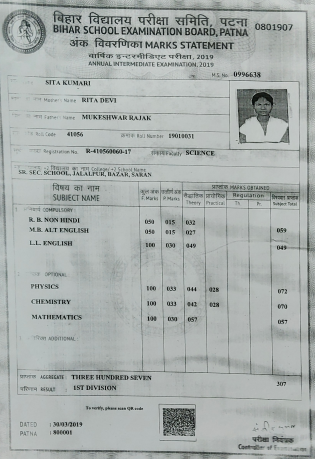 बिहार विद्यालय परीक्षा समिति, पटना
BIHAR SCHOOL EXAMINATION BOARD, PATNA
0801907
अंक विवरणिका MARKS STATEMENT
वार्षिक इन्टरमीडिएट परीक्षा, 2019
ANNUAL INTERMEDIATE EXAMINATION, 2019
M.S. No 0996638
SITA KUMARI
Name RITA DEVI
Name MUKESHWAR RAJAK
Code 41056 Roll Number 19010031
Registration No. R-410560060-17 Faculty SCIENCE
SR. SEC. SCHOOL, JALALPUR, BAZAR, SARAN
विषय का नाम
SUBJECT NAME
F. Marks P. Marks Theory Practical MARKS OBTAINED Regulation Subject Total
COMPULSORY
R. B. NON HINDI 050 015 032
M.B. ALT ENGLISH 050 015 027 059
L.L. ENGLISH 100 030 049 049
OPTIONAL
PHYSICS 100 033 044 028 072
CHEMISTRY 100 033 042 028 070
MATHEMATICS 100 030 057 057
ADDITIONAL
AGGREGATE THREE HUNDRED SEVEN 307
RESULT 1ST DIVISION
To verify, please scan QR code
DATED : 30/03/2019
PATNA : 800001
परीक्षा नियंत्रक
Controller of Examination